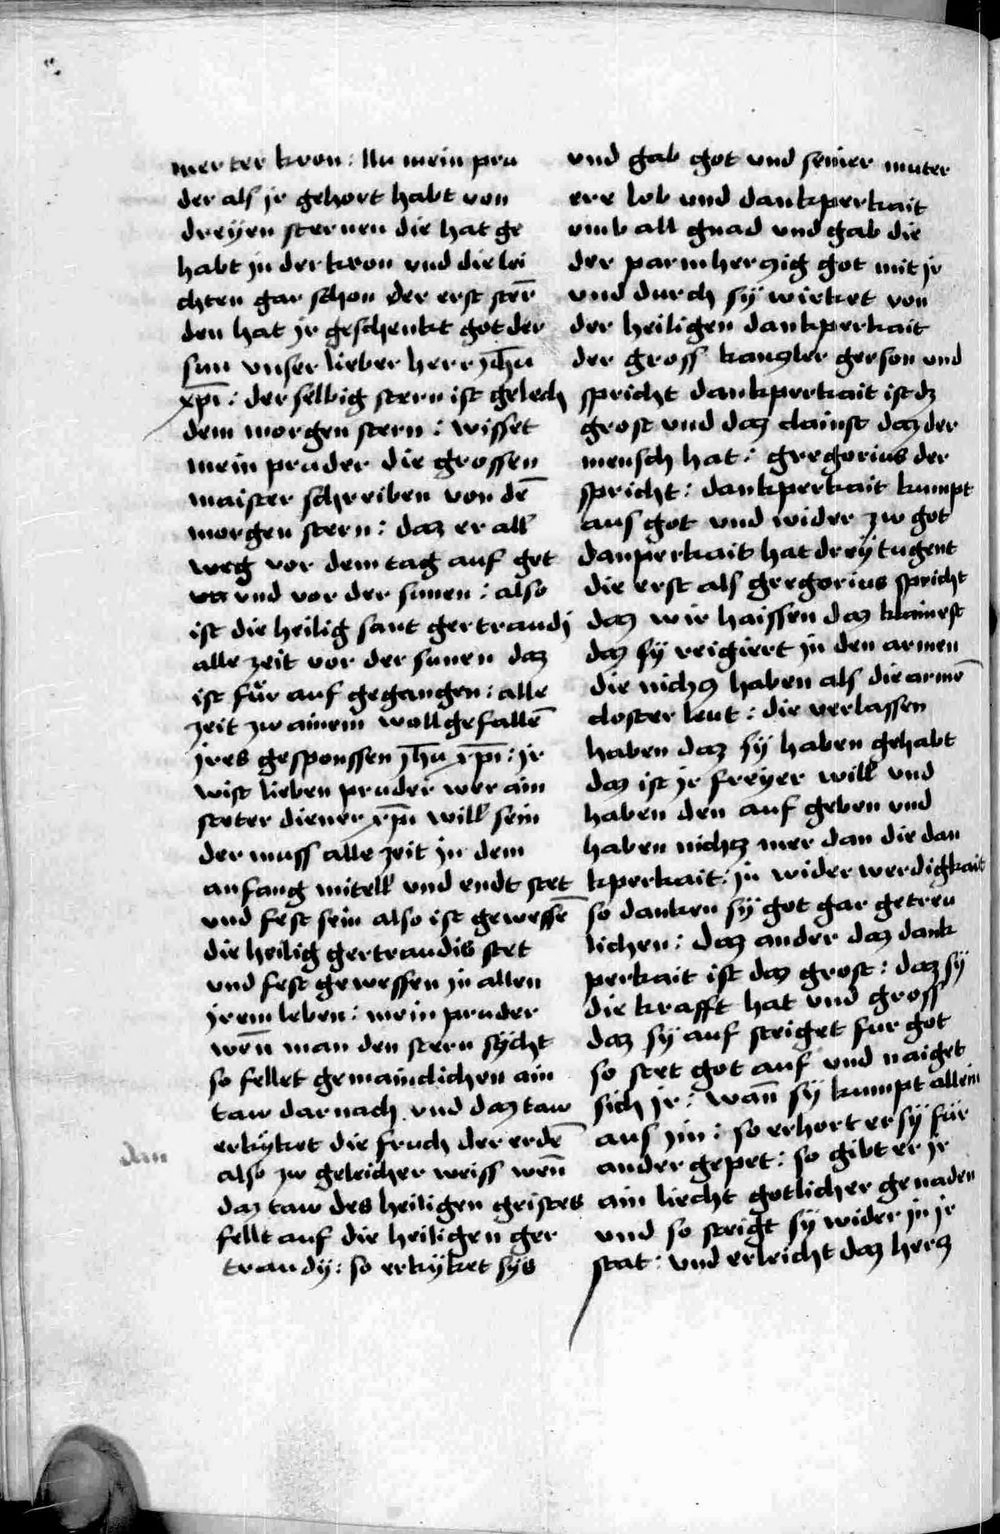 mer ter kron : Nu mein pru
der als jr gehort habt von
dreÿen sternen die hat ge
habt jn der kron vnd die lei
chten gar schon der erst ster̄
den hat jr geschenkt got der
sun vnser lieber herr jh̄u
xp̄i : der selbig stern ist gelech
dem morgen stern : wisset
mein pruder die grossen
maister schreiben von dē
morgen stern : daz er all
weg vor dem tag auf get
vn vnd vor der sunen : also
ist die heilig sant gertraudj
alle zeit vor der sunen daz
ist für auf gegangen : alle
zeit zw ainem wollgefallē
jres gesponssen jh̄u xp̄i : jr
wist lieben pruder wer ain
stater diener xp̄u will sein
der muss alle zeit jn dem
anfang mitell vnd endt stet
vnd fest sein also ist gewessē
die heilig gertraudis stet
vnd fest gewessen jn allen
jrem leben : mein pruder
wen̄ man den stern sÿcht
so fellet gemainclichen ain
taw darnach vnd daz taw
erkÿket die fruch der erdē
also zw geleicher weiss wen̄
daz taw des heiligen geistes
fellt auf die heiligen ger
traudÿ : so erkÿket sÿs
vnd gab got vnd seiner muter
ere lob vnd dankperkait
vmb all gnad vnd gab die
der parmherczig got mit jr
vnd durch sÿ wirket von
der heiligen dankperkait
der gross kanczler gerson vnd
spricht dankperkait ist dz
grost vnd daz clainst daz der
mensch hat : gregorius der
spricht : dankperkait kumpt
aus got vnd wider zw got
danperkait hat dreÿ tugent
die erst als gregorius spricht
daz wir haissen daz klainest
daz sÿ reigiert jn den armen
die nichcz haben als die armē
closter leut : die verlassen
haben daz sÿ haben gehabt
daz ist jr freÿer will vnd
haben den auf geben vnd
haben nichcz mer dan die dan
kperkait : jn widerwerdigkait
so danken sÿ got gar getreu
lichen : daz ander daz dank
perkait ist daz grost : daz sÿ
die krafft hat vnd gross
daz sÿ auf steiget fur got
so stet got auf vnd naiget
sich jr : wan̄ sÿ kumpt allein
aus jm : so erhort er sÿ für
ander gepet : so gibt er jr
ain liecht gotlicher genaden
vnd so steigt sÿ wider jn jr
stat : vnd erleicht daz hercz